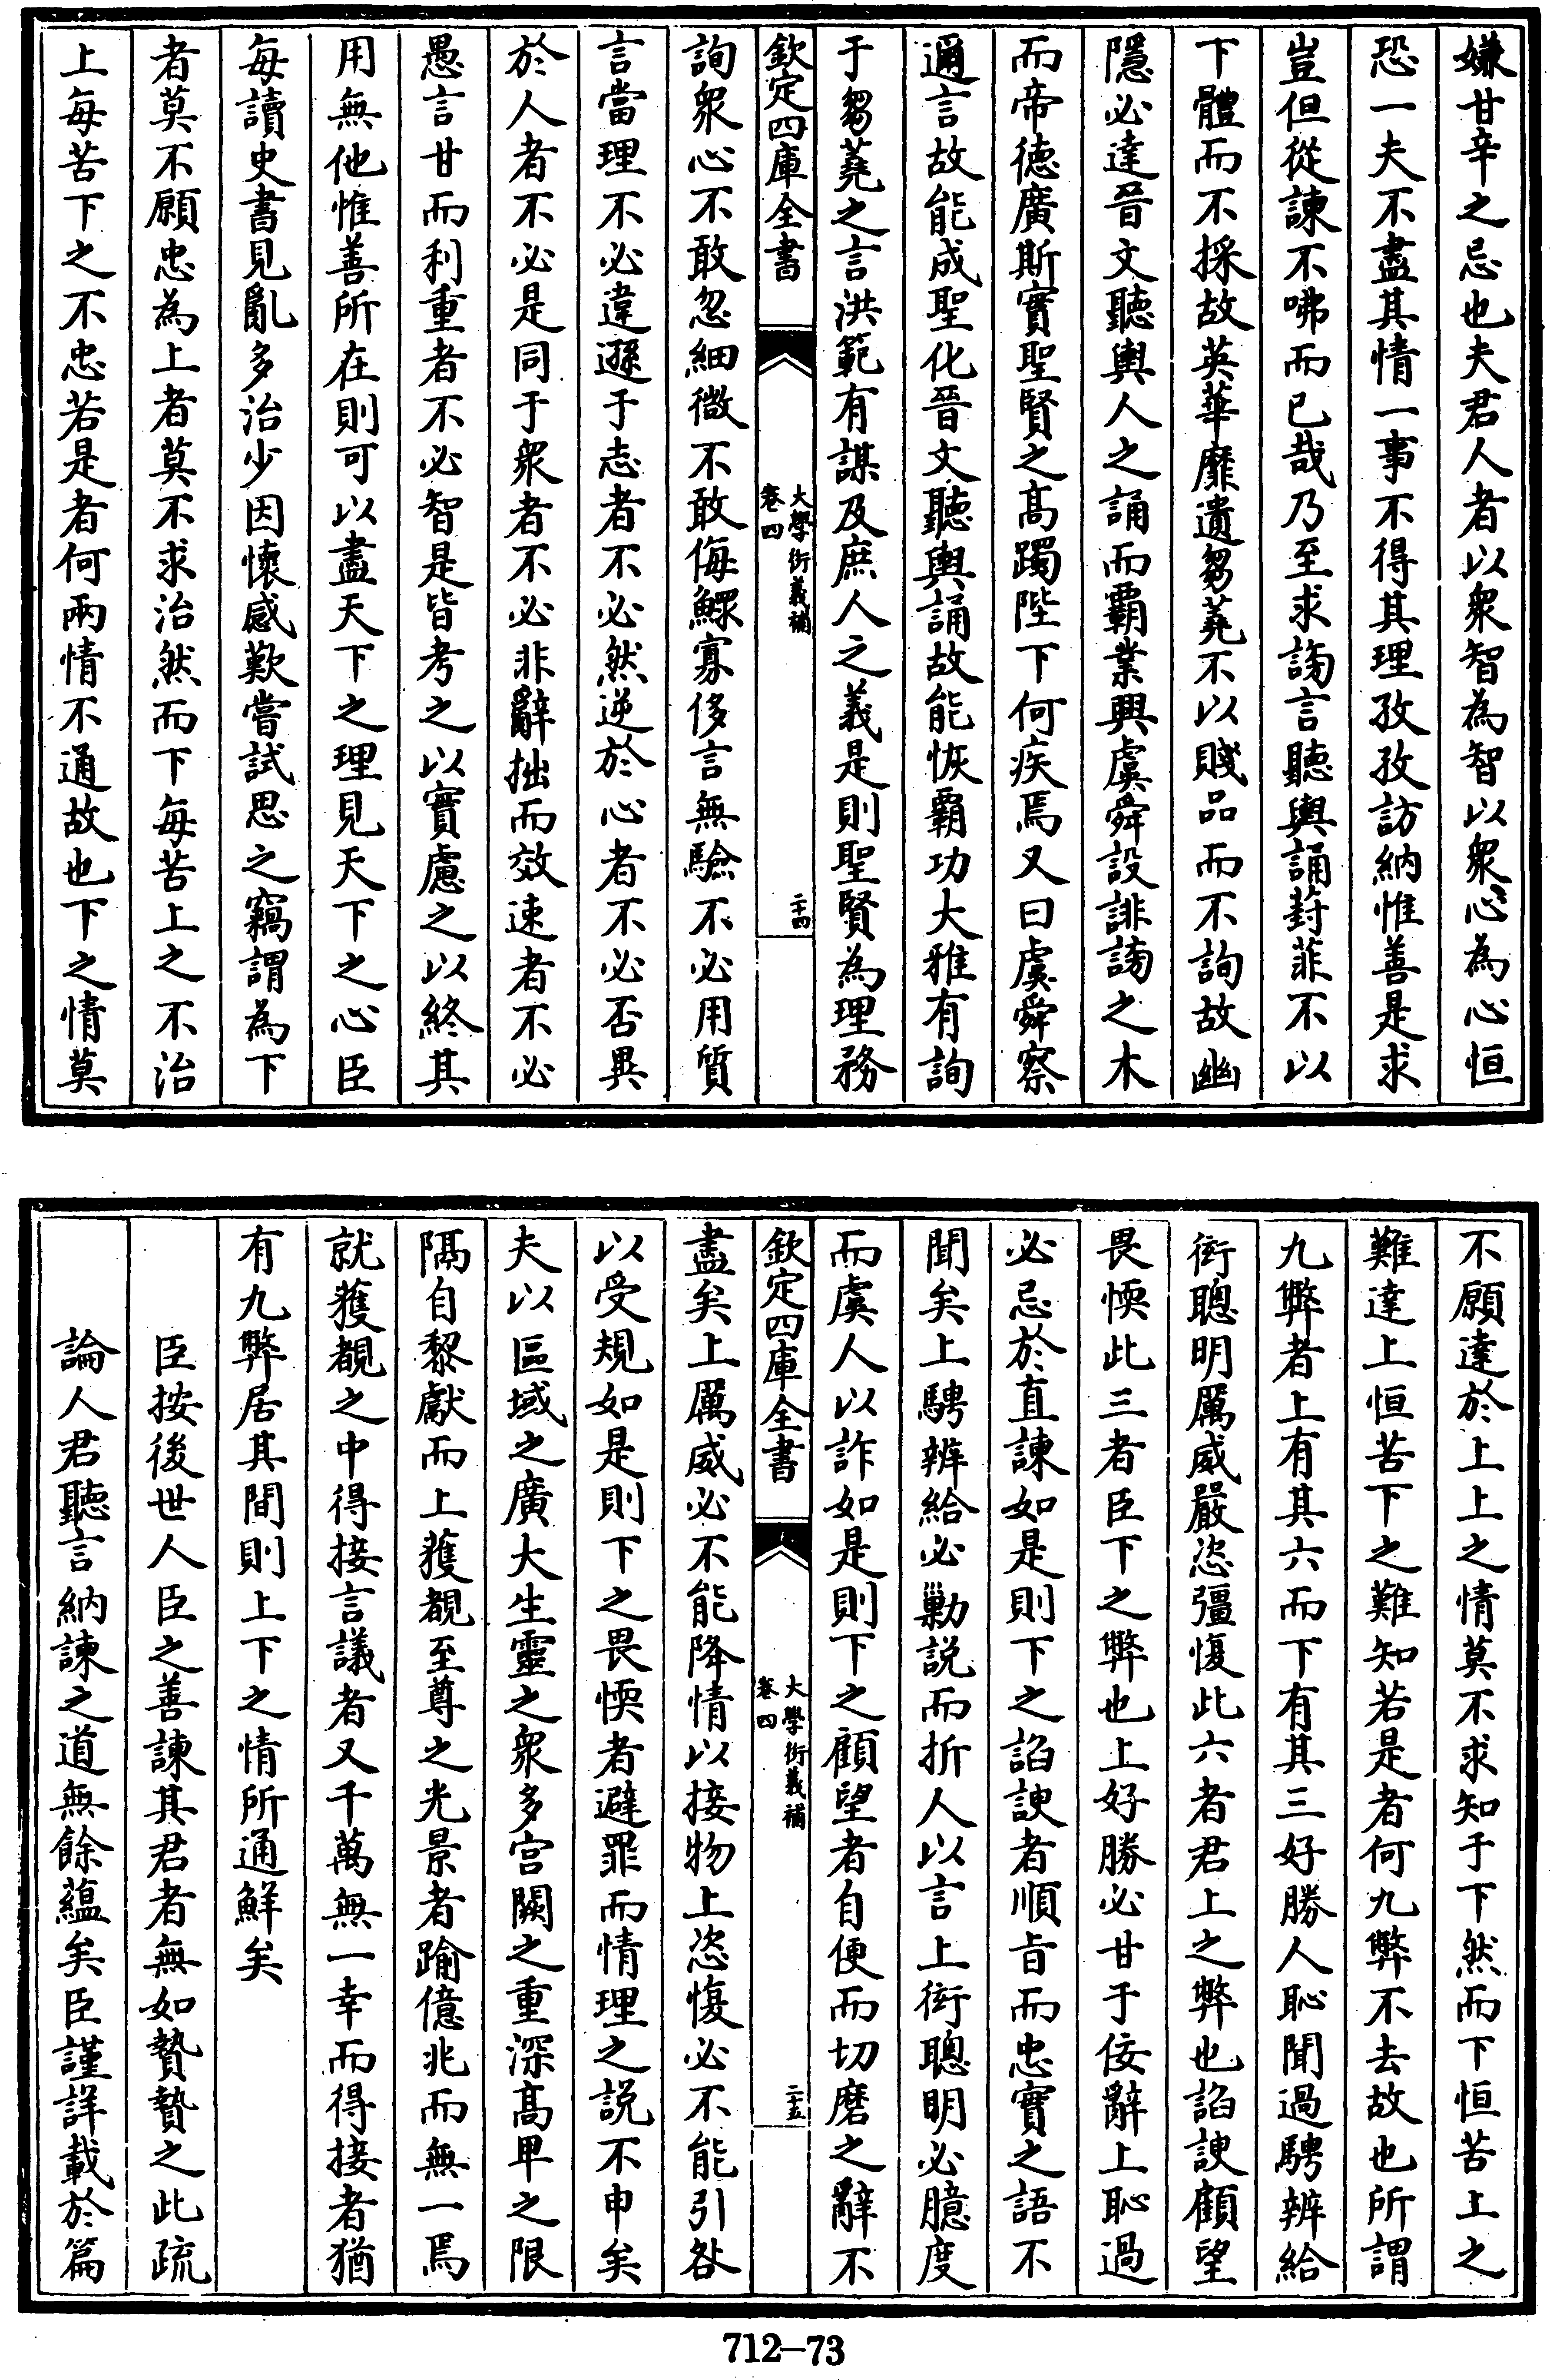 嫌甘辛之忌也夫君人者以衆智為智以衆心為心恒
恐一夫不盡其情一事不得其理孜孜訪納惟善是求
豈但從諫不咈而已哉乃至求謗言聽輿誦葑菲不以
下體而不採故英華靡遺芻蕘不以賤品而不詢故幽
隱必達晉文聽輿人之誦而覇業興虞舜設誹謗之木
而帝徳廣斯實聖賢之髙躅陛下何疾焉又曰虞舜察
邇言故能成聖化晉文聽輿誦故能恢覇功大雅有詢
于芻蕘之言洪範有謀及庶人之義是則聖賢為理務
欽定四庫全書
大學衍義補
卷四
二十四
詢衆心不敢忽細微不敢侮鰥寡侈言無驗不必用質
言當理不必違遜于志者不必然逆於心者不必否異
於人者不必是同于衆者不必非辭拙而效速者不必
愚言甘而利重者不必智是皆考之以實慮之以終其
用無他惟善所在則可以盡天下之理見天下之心臣
每讀史書見亂多治少因懷感歎嘗試思之竊謂為下
者莫不願忠為上者莫不求治然而下每苦上之不治
上每苦下之不忠若是者何兩情不通故也下之情莫
不願達於上上之情莫不求知于下然而下恒苦上之
難達上恒苦下之難知若是者何九弊不去故也所謂
九弊者上有其六而下有其三好勝人恥聞過騁辨給
衒聰明厲威嚴恣彊愎此六者君上之弊也諂諛顧望
畏愞此三者臣下之弊也上好勝必甘于佞辭上恥過
必忌於直諫如是則下之諂諛者順旨而忠實之語不
聞矣上騁辨給必勦説而折人以言上衒聰明必臆度
而虞人以詐如是則下之顧望者自便而切磨之辭不
欽定四庫全書
大學衍義補
卷四
二十五
盡矣上厲威必不能降情以接物上恣愎必不能引咎
以受規如是則下之畏愞者避罪而情理之説不申矣
夫以區域之廣大生靈之衆多宫闕之重深髙卑之限
隔自黎獻而上獲覩至尊之光景者踰億兆而無一焉
就獲覩之中得接言議者又千萬無一幸而得接者猶
有九弊居其間則上下之情所通鮮矣
臣按後世人臣之善諫其君者無如贄贄之此疏
論人君聽言納諫之道無餘蘊矣臣謹詳載於篇
712-73